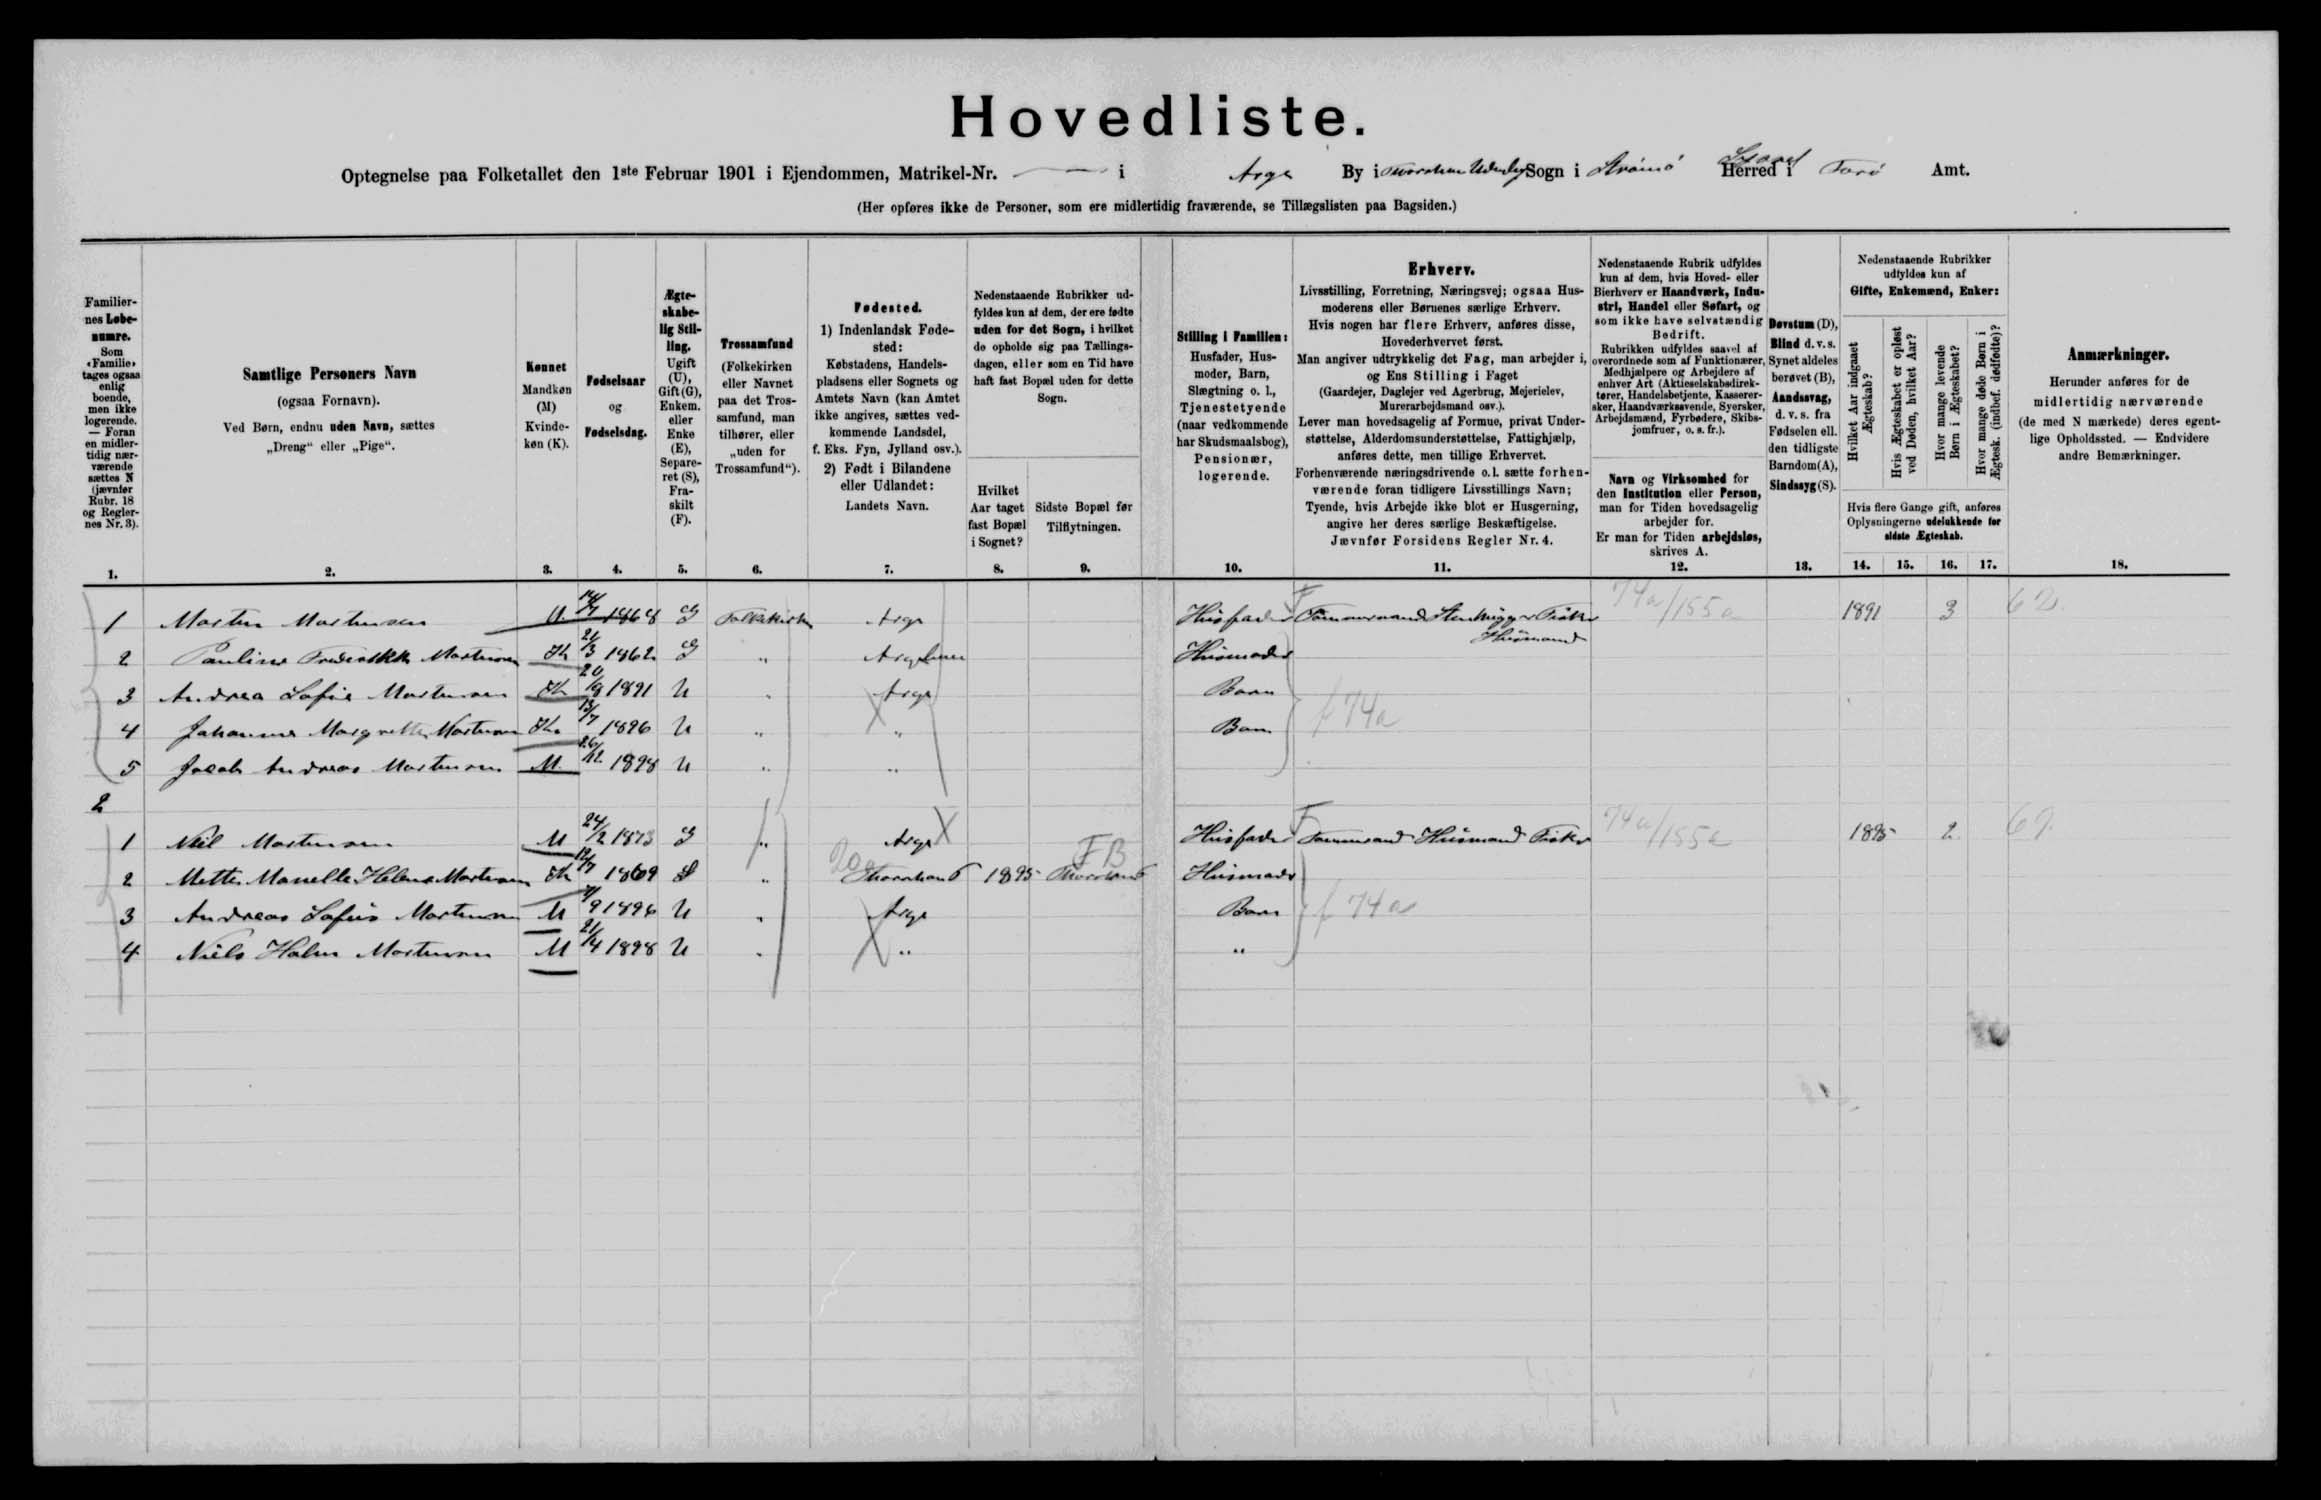 Hovedliste.
Optegnelse paa Folketallet den 1ste Februar 1901 i Ejendommen, Matrikel-Nr. — i Arge By i Thorshavn Udenby Sogn i Strømø Herred i Færø Amt.
(Her opføres ikke de Personer, som ere midlertidig fraværende, se Tillægslisten paa Bagsiden.)
Familiernes Løbenumre. Som «Familie» tages ogsaa enlig boende, men ikke logerende. — Foran en midlertidig nærværende sættes N (jævnfør Rubr. 18 og Reglernes Nr. 3).
Samtlige Personers Navn (ogsaa Fornavn). Ved Børn, endnu uden Navn, sættes „Dreng“ eller „Pige“.
Kønnet Mandkøn (M) Kvindekøn (K).
Fødselsaar og Fødselsdag.
Ægteskabelig Stilling. Ugift (U), Gift (G), Enkem. eller Enke (E), Separeret (S), Fraskilt (F).
Trossamfund (Folkekirken eller Navnet paa det Trossamfund, man tilhører, eller „uden for Trossamfund“).
Fødested. 1) Indenlandsk Fødested: Købstadens, Handelspladsens eller Sognets og Amtets Navn (kan Amtet ikke angives, sættes vedkommende Landsdel, f. Eks. Fyn, Jylland osv.). 2) Født i Bilandene eller Udlandet: Landets Navn.
Nedenstaaende Rubrikker udfyldes kun af dem, der ere fødte uden for det Sogn, i hvilket de opholde sig paa Tællingsdagen, eller som en Tid have haft fast Bopæl uden for dette Sogn.
Hvilket Aar taget fast Bopæl i Sognet?
Sidste Bopæl før Tilflytningen.
Stilling i Familien: Husfader, Husmoder, Barn, Slægtning o. l., Tjenestetyende (naar vedkommende har Skudsmaalsbog), Pensionær, logerende.
Erhverv.
Livsstilling, Forretning, Næringsvej; ogsaa Husmoderens eller Børnenes særlige Erhverv.
Hvis nogen har flere Erhverv, anføres disse, Hovederhvervet først.
Man angiver udtrykkelig det Fag, man arbejder i, og Ens Stilling i Faget
(Gaardejer, Daglejer ved Agerbrug, Mejerielev, Murerarbejdsmand osv.).
Lever man hovedsagelig af Formue, privat Understøttelse, Alderdomsunderstøttelse, Fattighjælp, anføres dette, men tillige Erhvervet.
Forhenværende næringsdrivende o.l. sætte forhenværende foran tidligere Livsstillings Navn;
Tyende, hvis Arbejde ikke blot er Husgerning, angive her deres særlige Beskæftigelse.
Jævnfør Forsidens Regler Nr. 4.
Nedenstaaende Rubrik udfyldes kun af dem, hvis Hoved- eller Bierhverv er Haandværk, Industri, Handel eller Søfart, og som ikke have selvstændig Bedrift.
Rubrikken udfyldes saavel af overordnede som af Funktionærer, Medhjælpere og Arbejdere af enhver Art (Aktieselskabsdirektører, Handelsbetjente, Kasserersker, Haandværkssvende, Syersker, Arbejdsmænd, Fyrbødere, Skibsjomfruer, o. s. fr.).
Navn og Virksomhed for den Institution eller Person, man for Tiden hovedsagelig arbejder for.
Er man for Tiden arbejdsløs, skrives A.
Døvstum (D), Blind d. v. s. Synet aldeles berøvet (B), Aandssvag, d. v. s. fra Fødselen ell. den tidligste Barndom (A), Sindssyg (S).
Nedenstaaende Rubrikker udfyldes kun af Gifte, Enkemænd, Enker:
Hvilket Aar indgaaet Ægteskab?
Hvis Ægteskabet er opløst ved Døden, hvilket Aar?
Hvor mange levende Børn i Ægteskabet?
Hvor mange døde Børn i Ægtesk. (indbef. dødfødte)?
Hvis flere Gange gift, anføres Oplysningerne udelukkende for sidste Ægteskab.
Anmærkninger.
Herunder anføres for de midlertidig nærværende (de med N mærkede) deres egentlige Opholdssted. — Endvidere andre Bemærkninger.
1. 2. 3. 4. 5. 6. 7. 8. 9. 10. 11. 12. 13. 14. 15. 16. 17. 18.
1 Morten Mortensen 1868 G Folkekirken Arge Husfader Tømmermand Stenhugger Fisker Husmand 74a/155a 1891 3 62.
2 Pauline Mortensen 21/3 1862 G „ Husmoder
3 Andrea Sofie Mortensen 1891 U „ Arge Barn f 74a
4 Johanne Margrethe Mortensen 13/7 1896 U „ „ Barn
5 Jacob Andreas Mortensen M 26/12 1898 U „ „
2
1 Niel Mortensen M 24/12 1873 G „ Arge Husfader Husmand Fisker 74a/155a 1895 2 62.
2 Mette Helene Mortensen 1869 „ Thorshavn 1895 Thorshavn FB Husmoder
3 Andreas Sofus Mortensen M 1896 U „ Arge Barn f 74a
4 Niels Holm Mortensen M 21/4 1898 U „ „ „